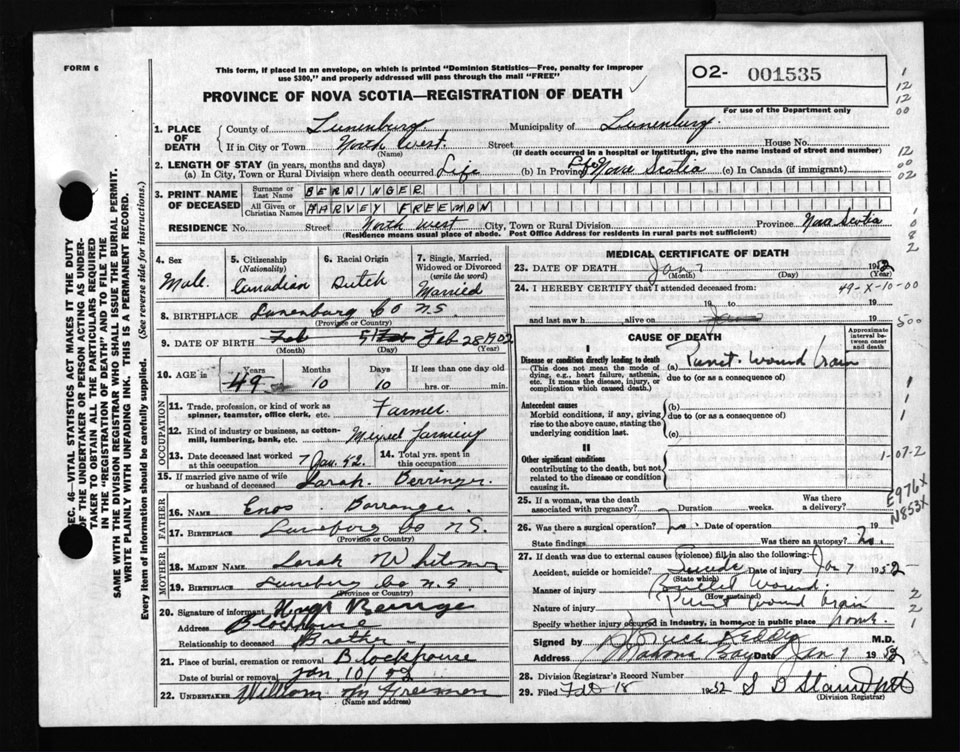 FORM 6
This form, if placed in an envelope, on which is printed "Dominion Statistics—Free, penalty for improper
use $300," and properly addressed will pass through the mail "FREE"
PROVINCE OF NOVA SCOTIA—REGISTRATION OF DEATH
O2- 001535
For use of the Department only
SEC. 46—VITAL STATISTICS ACT MAKES IT THE DUTY
OF THE UNDERTAKER OR PERSON ACTING AS UNDER-
TAKER TO OBTAIN ALL THE PARTICULARS REQUIRED
IN THE "REGISTRATION OF DEATH" AND TO FILE THE
SAME WITH THE DIVISION REGISTRAR WHO SHALL ISSUE THE BURIAL PERMIT.
WRITE PLAINLY WITH UNFADING INK. THIS IS A PERMANENT RECORD.
Every item of information should be carefully supplied. (See reverse side for instructions.)
1. PLACE OF DEATH County of Lunenburg. Municipality of Lunenburg.
If in City or Town North West. Street House No.
(Name) (If death occurred in a hospital or institution, give the name instead of street and number)
2. LENGTH OF STAY (in years, months and days)
(a) In City, Town or Rural Division where death occurred Life (b) In Province Life Nova Scotia (c) In Canada (if immigrant)
3. PRINT NAME OF DECEASED Surname or Last Name BERRINGER
All Given or Christian Names HARVEY FREEMAN
RESIDENCE No. Street North West City, Town or Rural Division Province Nova Scotia
(Residence means usual place of abode. Post Office Address for residents in rural parts not sufficient)
4. Sex Male.
5. Citizenship (Nationality) Canadian
6. Racial Origin Dutch
7. Single, Married, Widowed or Divorced (write the word) Married
8. BIRTHPLACE Lunenburg Co N.S.
(Province or Country)
9. DATE OF BIRTH Feb Feb 28 1902
(Month) (Day) (Year)
10. AGE in Years 49 Months 10 Days 10 If less than one day old hrs. or min.
OCCUPATION
11. Trade, profession, or kind of work as spinner, teamster, office clerk, etc. Farmer
12. Kind of industry or business, as cotton-mill, lumbering, bank, etc. Mixed farming
13. Date deceased last worked at this occupation 7 Jan. 52.
14. Total yrs. spent in this occupation
15. If married give name of wife or husband of deceased Sarah. Berringer.
FATHER
16. Name Enos
17. Birthplace Co N.S.
(Province or Country)
MOTHER
18. Maiden Name Sarah
19. Birthplace Co N.S
(Province or Country)
20. Signature of informant
Address Blockhouse
Relationship to deceased Brother
21. Place of burial, cremation or removal Blockhouse
Date of burial or removal Jan 10/52
22. UNDERTAKER William
(Name and address)
MEDICAL CERTIFICATE OF DEATH
23. DATE OF DEATH Jan 7 1952
(Month) (Day)
24. I HEREBY CERTIFY that I attended deceased from: 49-X-10-00
19 to 19
and last saw h alive on 19
CAUSE OF DEATH
Approximate interval between onset and death
I
Disease or condition directly leading to death
(This does not mean the mode of dying, e.g., heart failure, asthenia, etc. It means the disease, injury, or complication which caused death.)
(a) wound brain
due to (or as a consequence of)
Antecedent causes
Morbid conditions, if any, giving rise to the above cause, stating the underlying condition last.
(b)
due to (or as a consequence of)
(c)
II
Other significant conditions
contributing to the death, but not related to the disease or condition causing it.
25. If a woman, was the death associated with pregnancy? Duration weeks. Was there a delivery?
26. Was there a surgical operation? no. Date of operation 19
State findings Was there an autopsy? no.
27. If death was due to external causes (violence) fill in also the following:
Accident, suicide or homicide? Suicide Date of injury Jan 7 1952
(State which)
Manner of injury Bullet Wound
(How sustained)
Nature of injury wound brain
Specify whether injury occurred in industry, in home, or in public place home
Signed by M.D.
Address Mahone Bay Date Jan 1952
28. Division Registrar's Record Number
29. Filed Feb 18 1952 S D
(Division Registrar)
1
12
12
00
12
00
02
1
0
8
2
500
1
1
1
1-07-2
E976X
N853X
2
2
1